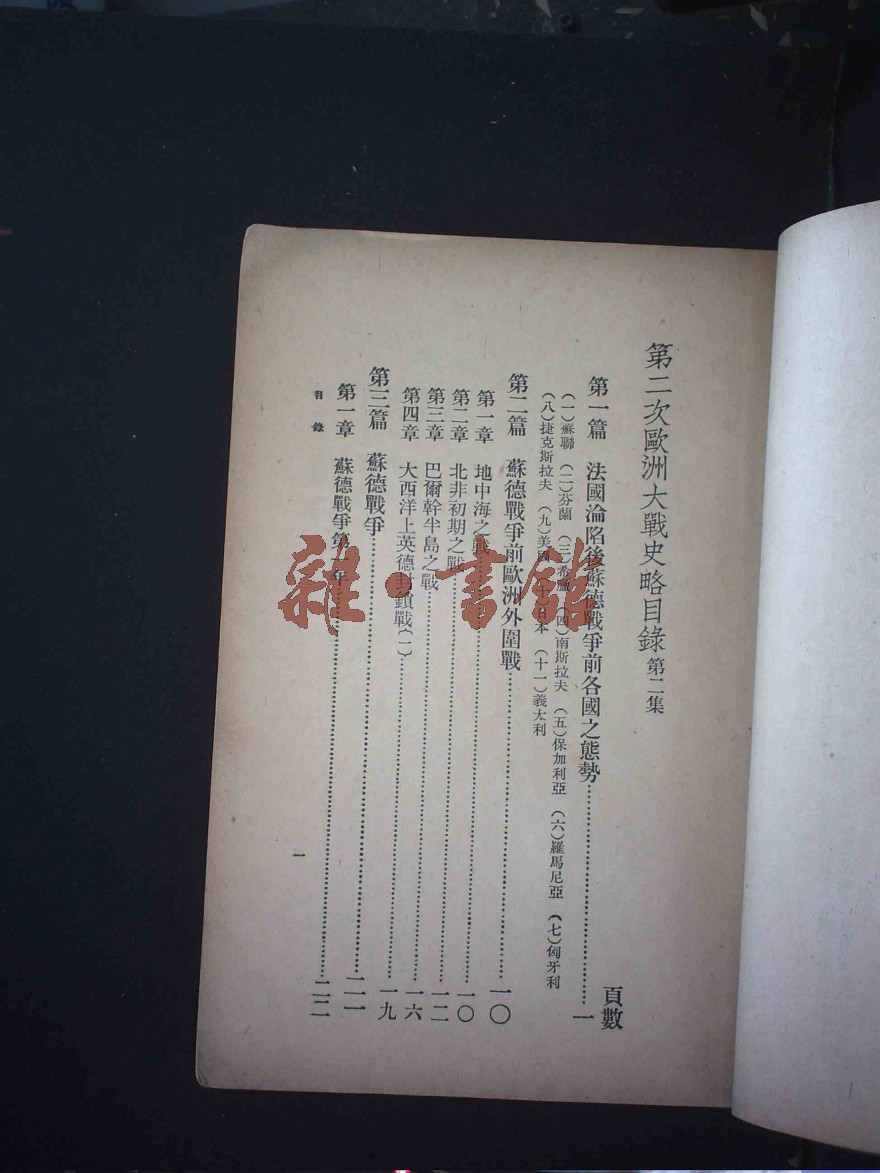 第二次歐洲大戰史略目錄 第二集
頁數
第一篇 法國淪陷後蘇德戰爭前各國之態勢……一
(一)蘇聯 (二)芬蘭 (三)希臘 (四)南斯拉夫 (五)保加利亞 (六)羅馬尼亞 (七)匈牙利
(八)捷克斯拉夫 (九)美國 (十)日本 (十一)義大利
第二篇 蘇德戰爭前歐洲外圍戰……一〇
第一章 地中海之戰……一〇
第二章 北非初期之戰……一二
第三章 巴爾幹半島之戰……一六
第四章 大西洋上英德封鎖戰(一)……一九
第三篇 蘇德戰爭……二一
第一章 蘇德戰爭第一年……二二
目錄
一
雜·書館